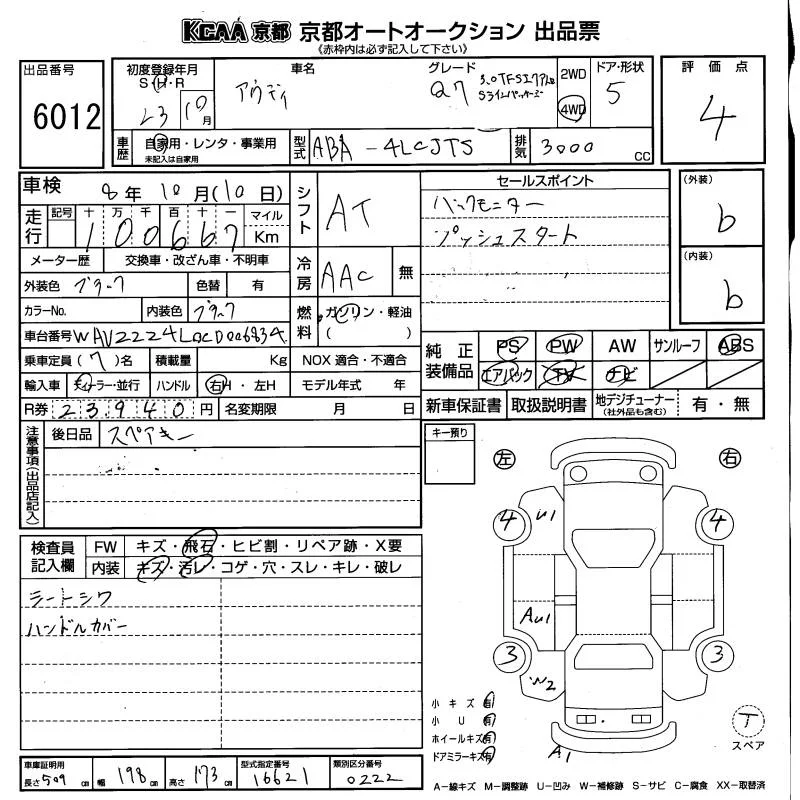 KCAA 京都 京都オートオークション 出品票
《赤枠内は必ず記入して下さい》
出品番号
6012
初度登録年月
S・H・R
23 10月
車名
アウディ
グレード
Q7 3.0TFSIクワトロ
Sラインパッケージ
2WD
4WD
ドア・形状
5
評価点
4
車歴 自家用・レンタ・事業用
未記入は自家用
型式 ABA-4LCJTS
排気 3000 cc
車検 8年10月(10日)
走行 記号 十 万 千 百 十 一 マイル
100667 Km
シフト AT
セールスポイント
バックモニター
プッシュスタート
(外装)
b
(内装)
b
メーター歴 交換車・改ざん車・不明車
冷房 AAC 無
外装色 ブラック 色替 有
カラーNo. 内装色 ブラック
燃料 ガソリン・軽油
( )
車台番号 WAVZZZ4L0CD006834
乗車定員(7)名 積載量 Kg NOX 適合・不適合
輸入車 ディーラー・並行 ハンドル 右H・左H モデル年式 年
R券 23940円 名変期限 月 日
純正装備品 PS PW AW サンルーフ ABS
エアバック TV ナビ
新車保証書 取扱説明書 地デジチューナー(社外品も含む) 有・無
注意事項(出品店記入)
後日品 スペアキー
キー預り
左 右
検査員記入欄
FW キズ・飛石・ヒビ割・リペア跡・X要
内装 キズ・汚レ・コゲ・穴・スレ・キレ・破レ
シートシワ
ハンドルカバー
4 U1 4
AU1
3 3
W2
小キズ 有
小U 有
ホイールキズ 有
ドアミラーキズ 有
A1
T
スペア
車庫証明用
長さ509cm 幅198cm 高さ173cm
型式指定番号
16621
類別区分番号
0222
A-線キズ M-調整跡 U-凹み W-補修跡 S-サビ C-腐食 XX-取替済